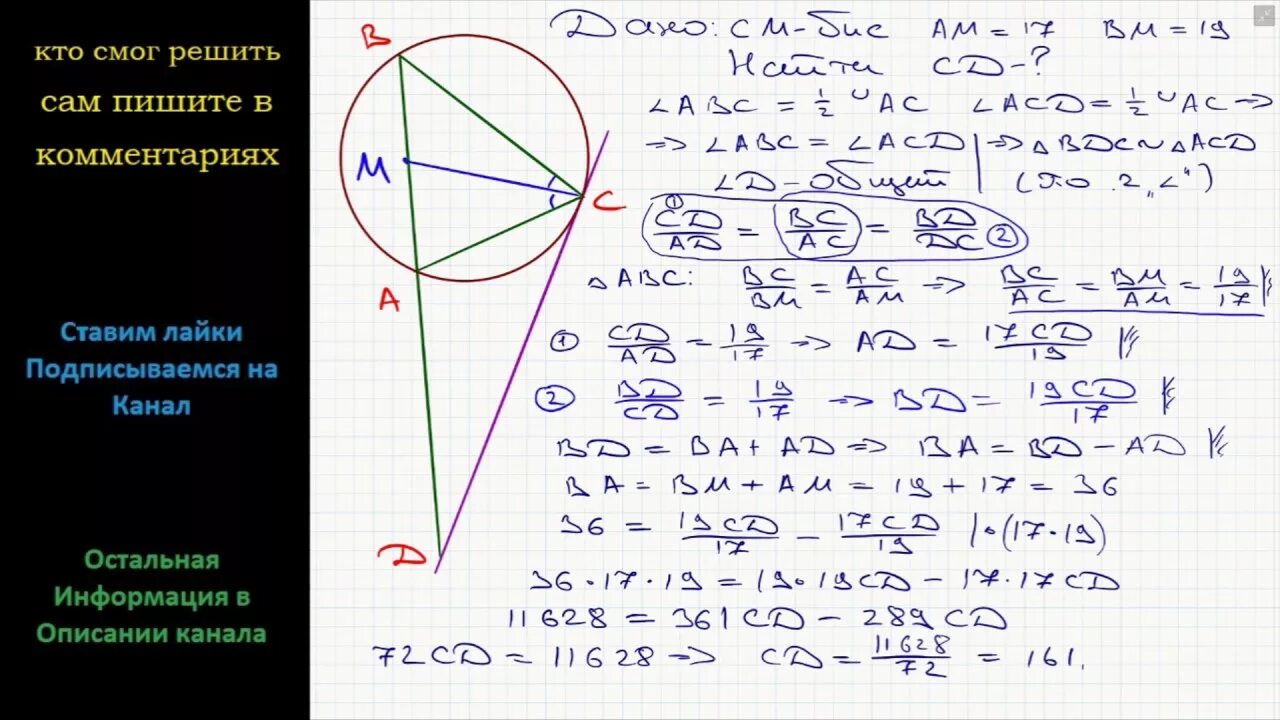 кто смог решить
сам пишите в
комментариях
Ставим лайки
Подписываемся на
Канал
Остальная
Информация в
Описании канала
B
M
C
A
D
Дано: CM-бис AM = 17 BM = 19
Найти CD-?
∠ABC = 1/2 ◡AC ∠ACD = 1/2 ◡AC =>
=> ∠ABC = ∠ACD | => △BDC ~ △ACD
∠D - общий | (по 2 „∠“)
① CD/AD = BC/AC = BD/DC ②
△ABC: BC/BM = AC/AM => BC/AC = BM/AM = 19/17
① CD/AD = 19/17 => AD = 17CD/19
② BD/CD = 19/17 => BD = 19CD/17
BD = BA + AD => BA = BD - AD
BA = BM + AM = 19 + 17 = 36
36 = 19CD/17 - 17CD/19 | · (17·19)
36·17·19 = 19·19CD - 17·17CD
11628 = 361CD - 289CD
72CD = 11628 => CD = 11628/72 = 161,